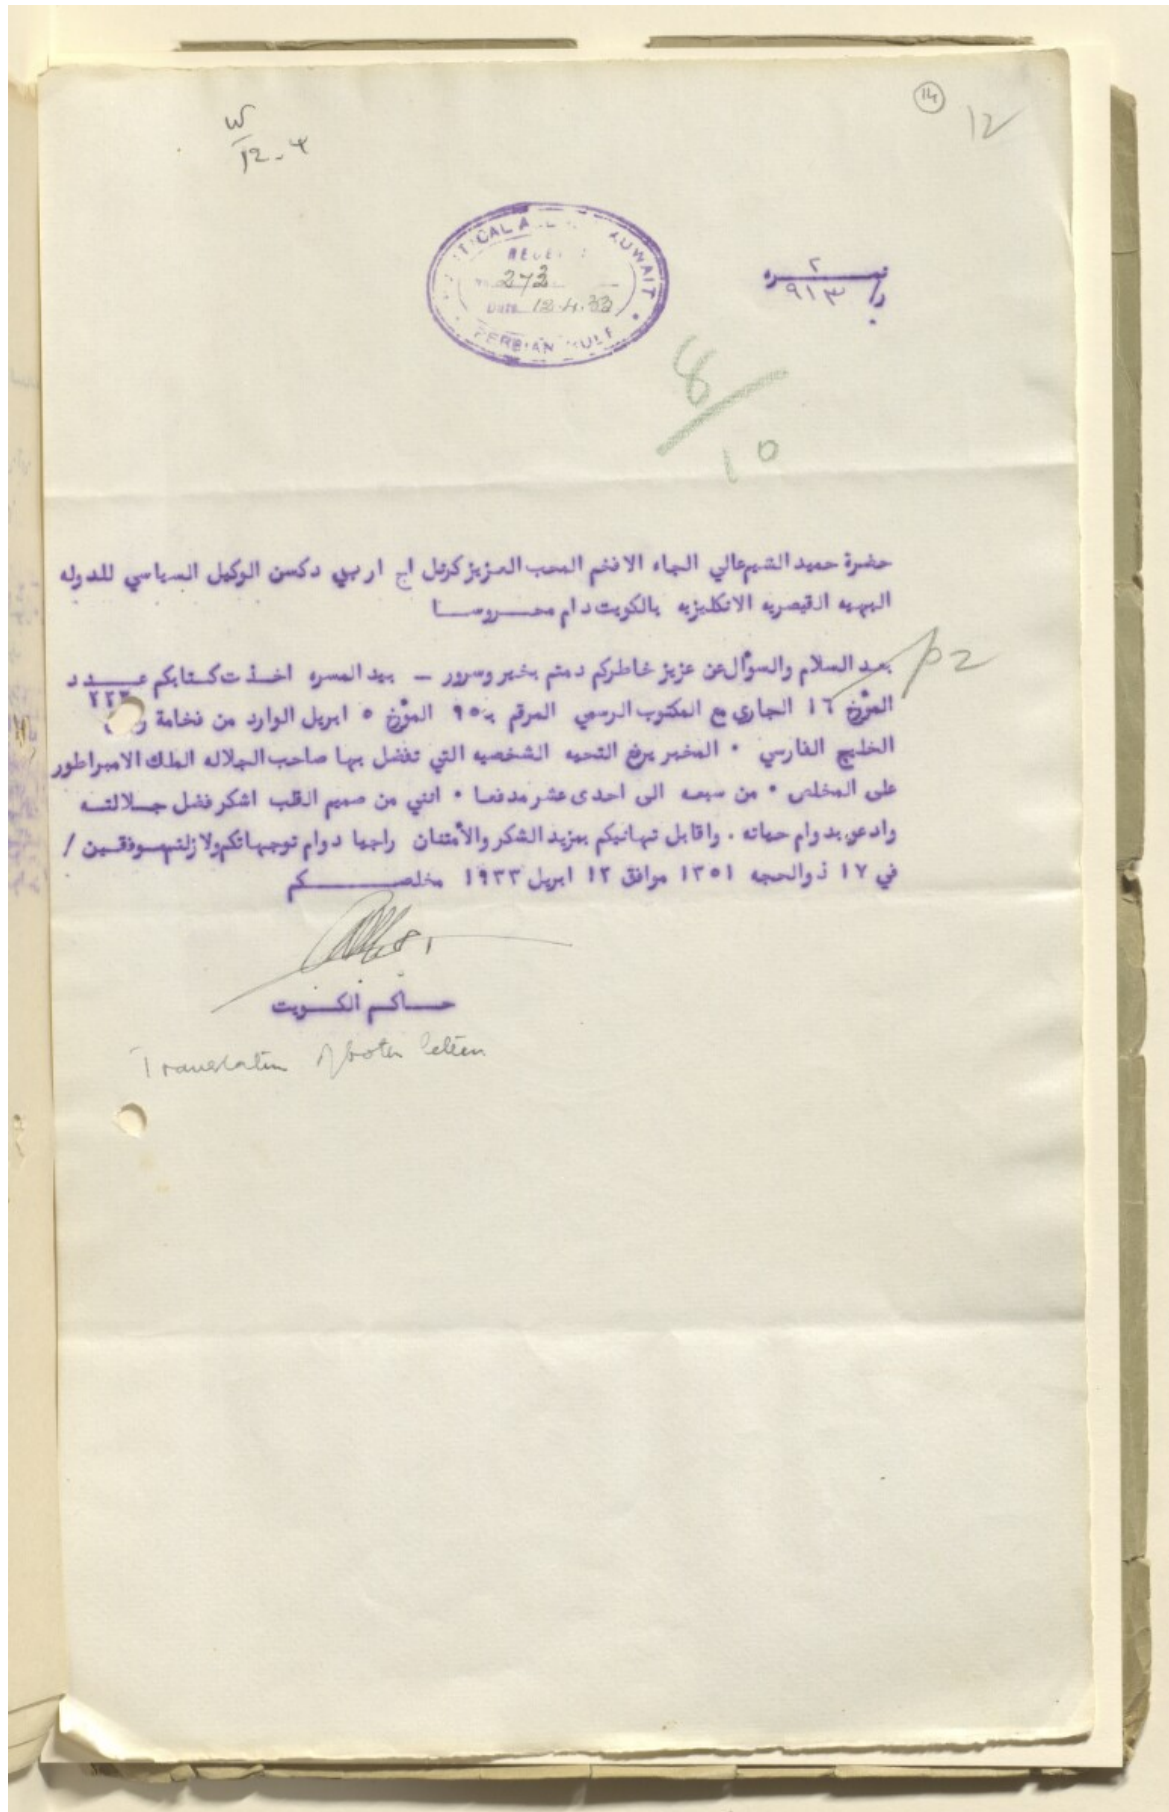 14
12
12-4
KUWAIT
273
Date 12.4.33
PERSIAN GULF
نمره ر/٢
٩١٣
8/10
حضرة حميد الشيم عالي الجاه الافخم المحب العزيز كرنل اج ار بي دكسن الوكيل السياسي للدوله
البهيه القيصريه الانكليزيه بالكويت دام محروسا
بعد السلام والسوأل عن عزيز خاطركم دمتم بخير وسرور – بيد المسره اخذت كتابكم عدد
p2
٢٢٣
المؤرخ ١٦ الجاري مع المكتوب الرسمي المرقم بـ ٩٥ المؤرخ ٥ ابريل الوارد من فخامة
الخليج الفارسي ٠ المخبر برفع التحيه الشخصيه التي تفضل بها صاحب الجلاله الملك الامبراطور
على المخلص ٠ من سبعه الى احدى عشر مدفعا ٠ انني من صميم القلب اشكر فضل جلالته
وادعو بدوام حياته . واقابل تهانيكم بمزيد الشكر والأمتنان راجيا دوام توجهاتكم ولا زلتم موفقين /
في ١٧ ذوالحجه ١٣٥١ موافق ١٢ ابريل ١٩٣٣ مخلصكم
حاكم الكويت
Translation of both letters